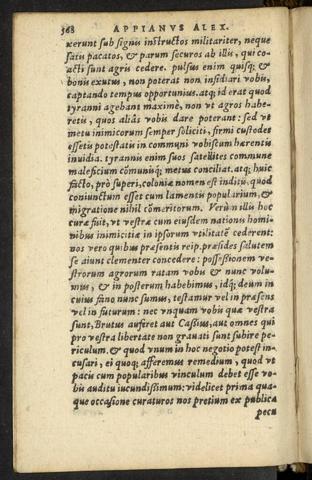 368 APPIANVS ALEX.
xerunt sub signis instructos militariter, neque
satis pacatos, & parum securos ab illis, qui co-
acti sunt agris cedere. pulsus enim quisq; &
bonis exutus, non poterat non insidiari vobis,
captando tempus opportunius. atq; id erat quod
tyranni agebant maximè, non vt agros habe-
retis, quos aliâs vobis dare poterant: sed vt
metu inimicorum semper soliciti, firmi custodes
essetis potestatis in communi vobiscum hærentis
inuidia. tyrannis enim suos satellites commune
maleficium cõmunisq; metus conciliat. atq; huic
facto, prò superi, coloniæ nomen est inditũ, quod
coniunctum esset cum lamentis popularium &
migratione nihil cõmeritorum. Verùm illi hoc
curæ fuit, vt vestræ cum eiusdem nationis homi-
nibus inimicitiæ in ipsorum vtilitatẽ cederent:
nos vero quibus præsentis reip. præsides salutem
se aiunt clementer concedere: possessionem ve-
strorum agrorum ratam vobis & nunc volu-
mus, & in posterum habebimus, idq; deum in
cuius fano nunc sumus, testamur vel in præsens
vel in futurum: nec vnquam vobis quæ vestra
sunt, Brutus auferet aut Cassius, aut omnes qui
pro vestra libertate non grauati sunt subire pe-
riculum. & quod vnum in hoc negotio potest in-
cusari, ei quoq; afferemus remedium, quod vt
pacis cum popularibus vinculum debet esse vo-
bis auditu iucundissimum: videlicet prima qua-
que occasione curaturos nos pretium ex publica
pecu